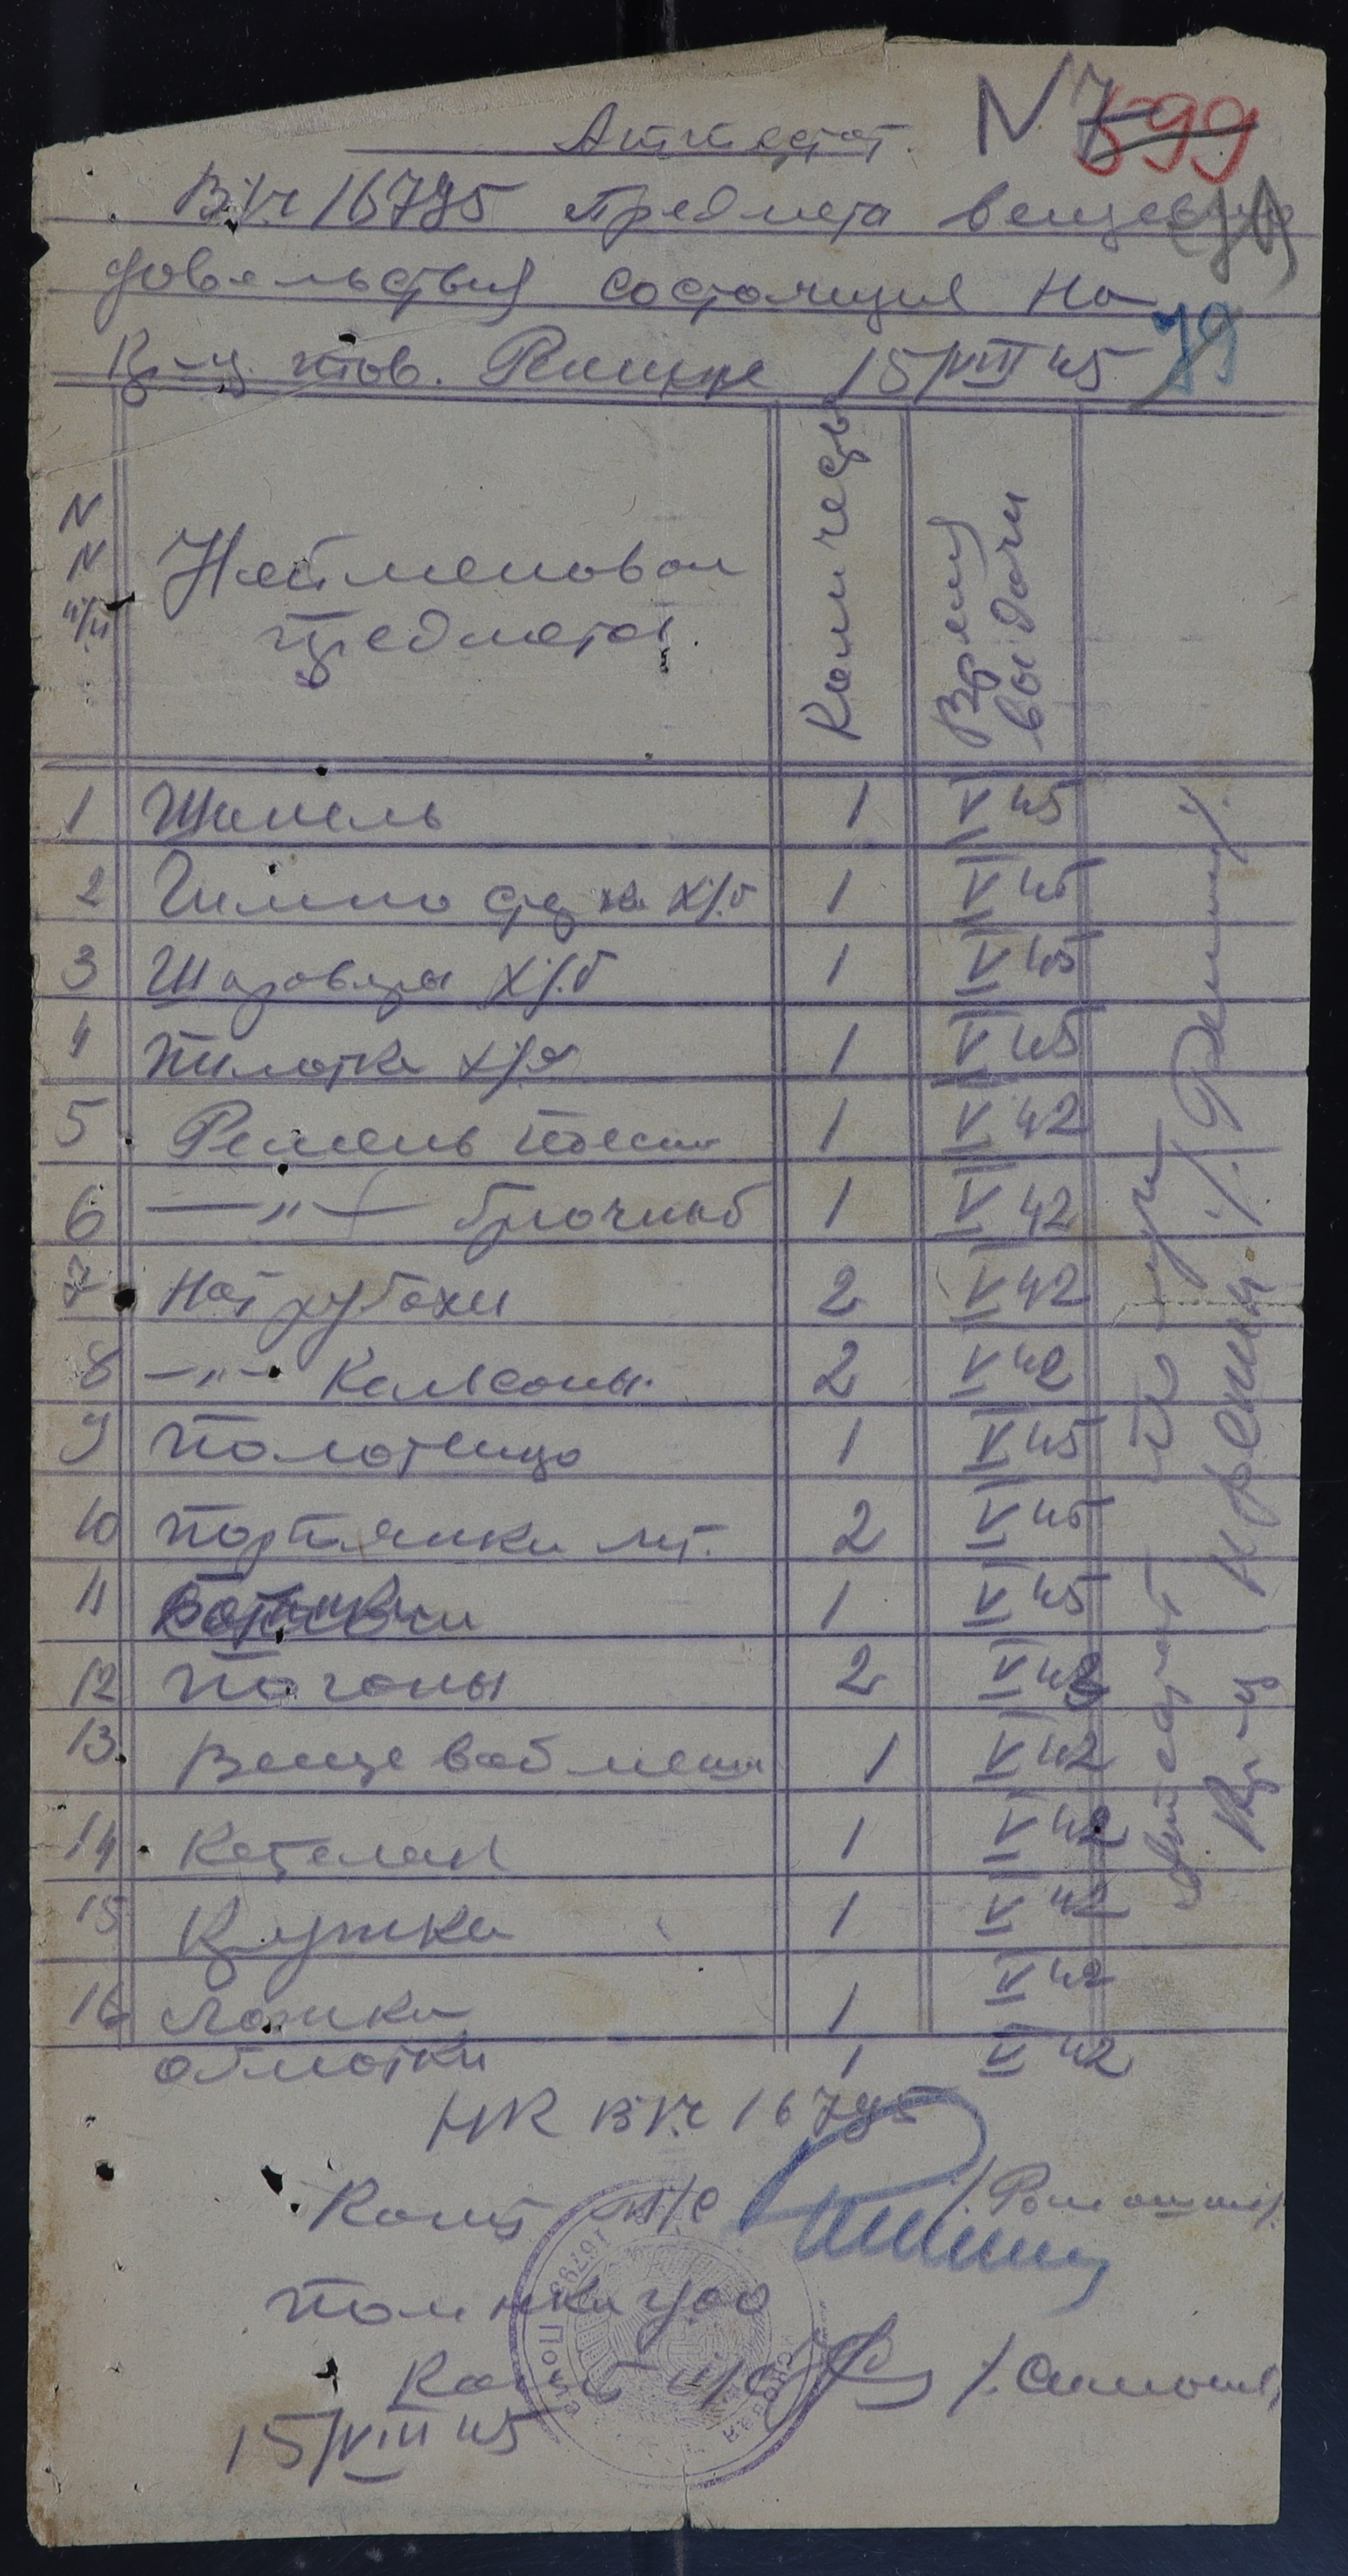 Аттестат. N 7
599
В/ч 16795 предмета вещев
довольствия состоящия на
79
Кр-ц. тов. Ренинке 15/VIII 45
N N п/п Наименован предмета. Количеств Время выдачи
1 Шинель 1 V 45
2 Гимнастерка х/б 1 V 45
3 Шаровары х/б 1 V 45
4 Пилотка х/б 1 V 45
5 Ремень поясн 1 V 42
6 —"— брючный 1 V 42
7 Нат рубахи 2 V 42
8 —"— Кальсоны 2 V 42
9 Полотенцо 1 V 45
10 Портянки лет. 2 V 45
11 Ботинки 1 V 45
12 Погоны 2 V 42
13 Вещевой меш 1 V 42
14 Котелок 1 V 42
15 Кружка 1 V 42
16 Ложка 1 V 42
обмотки 1 V 42
аттестат получил
Кр-ц
НК В/ч 16795
Капит м/с
Пом нка по
Капит и/с
15/VIII 45